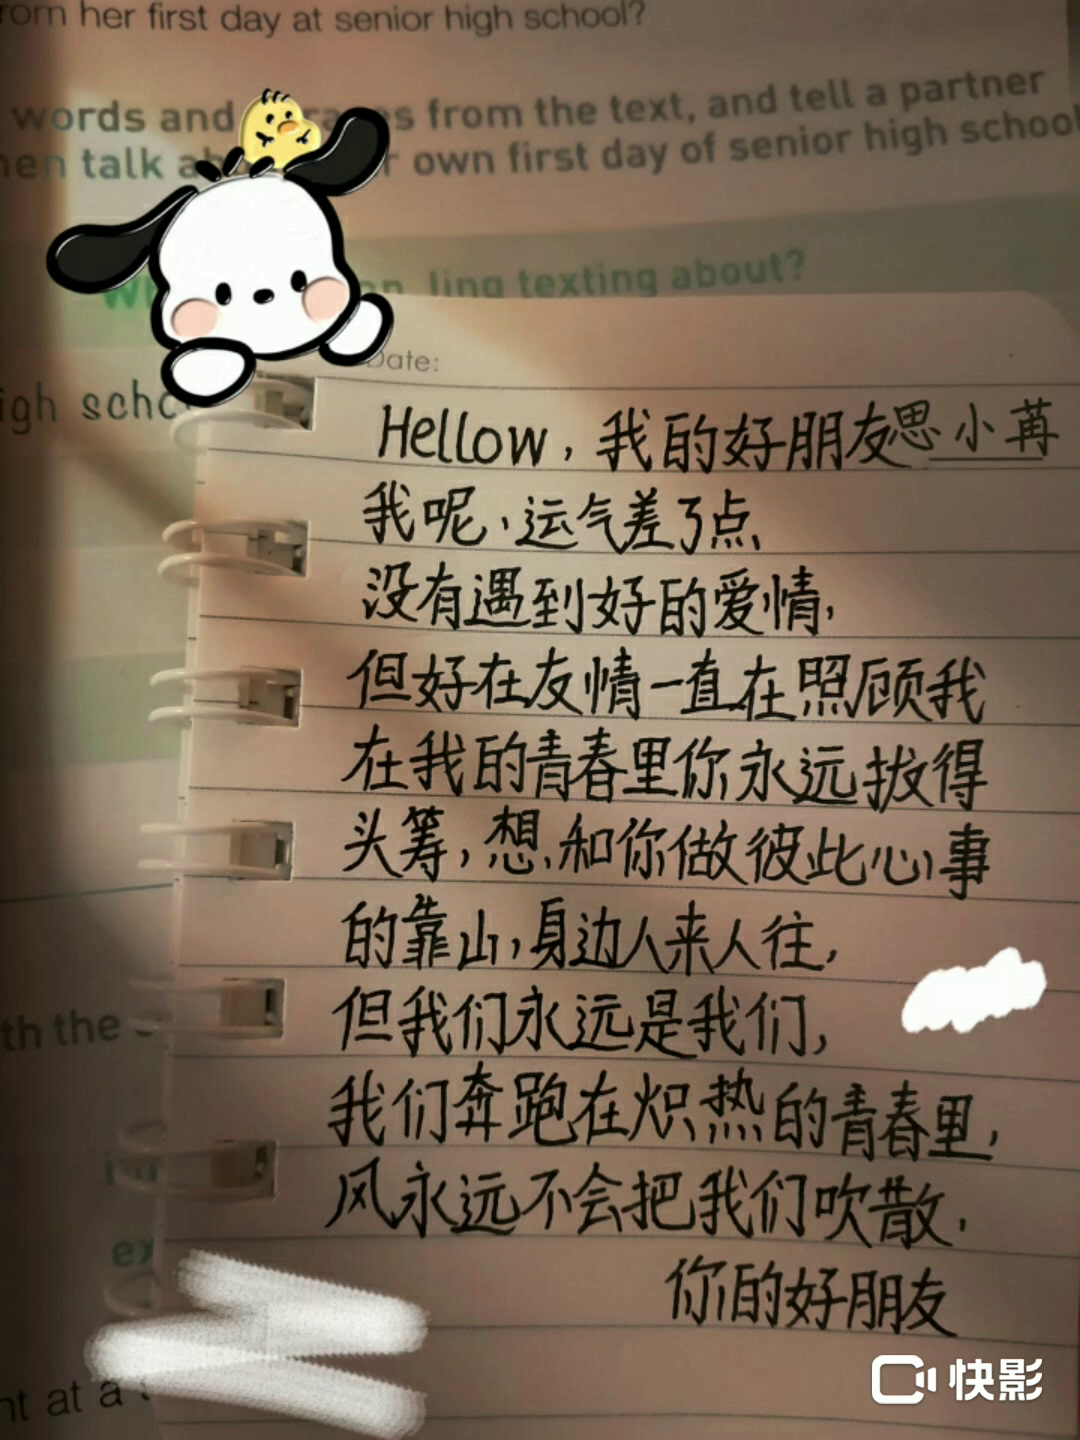 rom her first day at senior high school?
words and from the text, and tell a partner
hen talk own first day of senior high school
ling texting about?
Date:
igh scho
Hellow，我的好朋友思小苒
我呢，运气差了点
没有遇到好的爱情，
但好在友情一直在照顾我
在我的青春里你永远拔得
头筹，想和你做彼此心事
的靠山，身边人来人往，
但我们永远是我们，
th the
我们奔跑在炽热的青春里，
风永远不会把我们吹散，
ex
你的好朋友
nt at a
快影